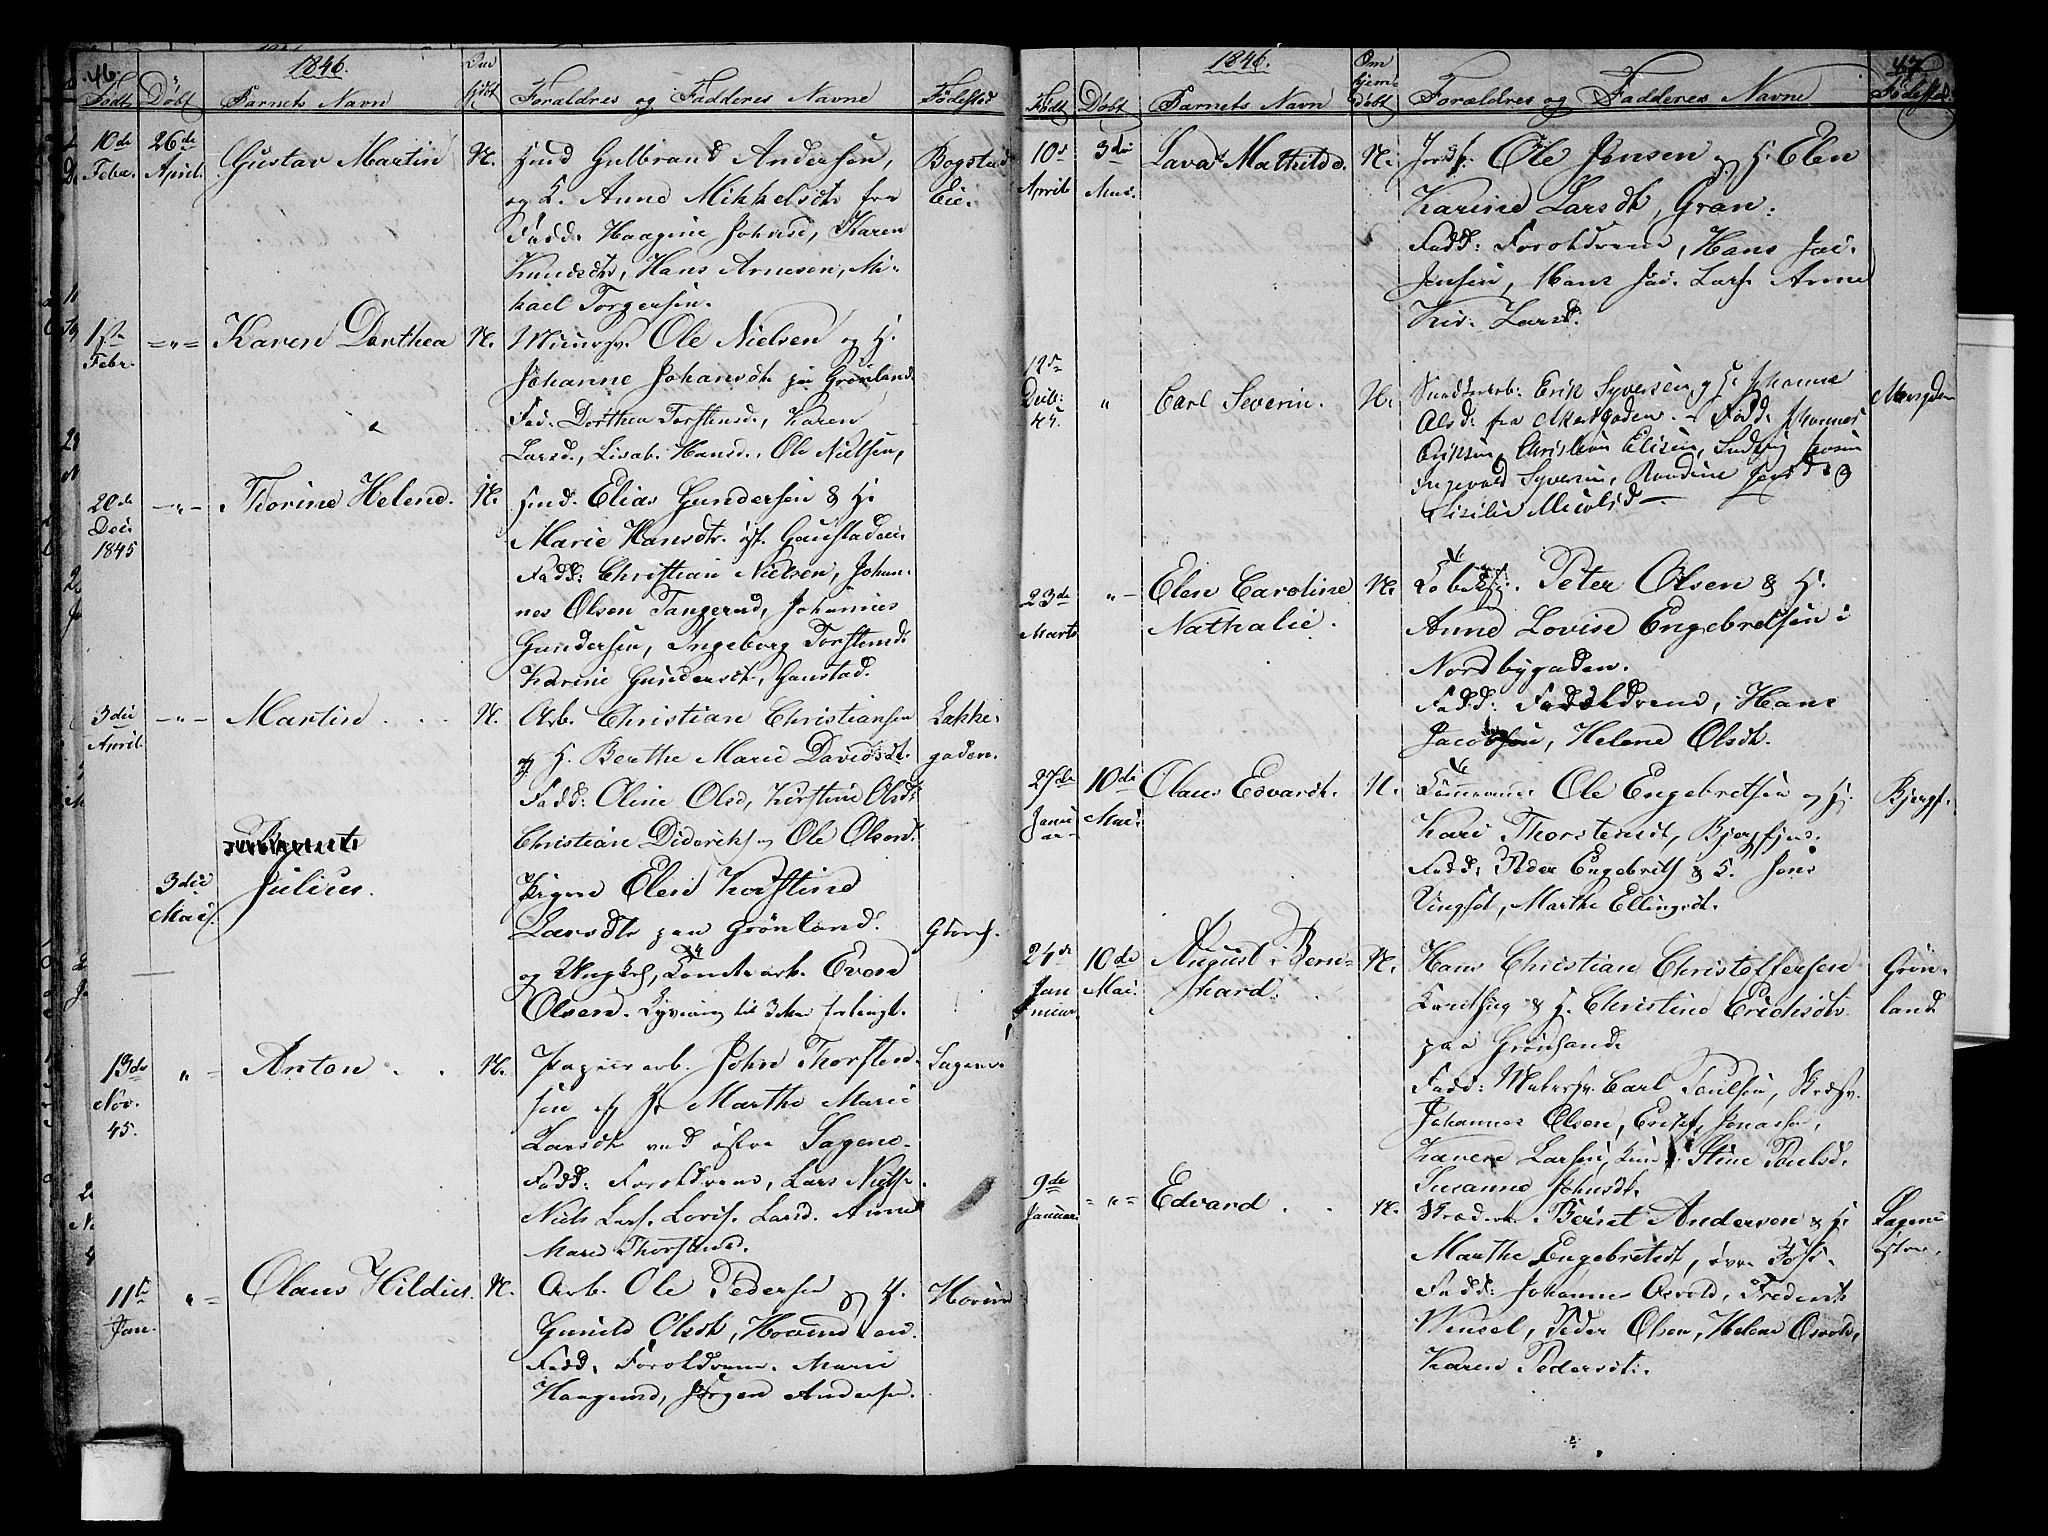 46.
1846.
Født
Døbt
Barnets Navn
Forældres og Fadderes Navne
Fødested
10de
Febr.
26de
April.
Gustav Martin
N.
Hmd Gulbrand Andersen,
og H. Anne Mikkelsdtr fra
Fadd: Haagine Johnsd, Karen
Knudsdtr, Hans Arnesen, Mi-
kael Torgersen.
Bogstad
Eie.
1ste
Febr.
= " =
Karen Dorthea
N.
Ole Nielsen og H.
Johanne Johansdtr paa Grønland.
Fad. Dorthea Torstensd., Karen
Larsd., Lisab. Hansd., Ole Nielsen,
20de
Dec.
1845
- " -
Thorine Helene.
N.
Hmd. Elias Gundersen & H.
Marie Hansdtr.
Fadd: Christian Nielsen, Johan-
nes Olsen Tangerud, Johannes
Gundersen, Ingeborg Torstensd.
Karine Gundersdtr, Gaustad.
3die
April.
- " -
Martin
N.
Arb. Christian Christiansen
og H. Berthe Marie Davidsdt.
Fadd: Oline Olsd, Kirstine Olsd:
Christian Dideriks og Ole Olsen.
Lakke-
gaden.
3die
Mai.
Julius.
Pigen Elen Kirstine
Larsdtr paa Grønland.
og Ungk, Tomtearb. Even
Olsen.
13de
Nov.
45.
" -
Anton
N.
Papierarb. John Thorsten-
sen og H. Marthe Marie
Larsdtr ved østre Sagene.
Fadd: Forældrene, Lars Niels.
Niels Lars. Lovis. Larsd. Anne
Marie Thorstensd.
Sagene
11te
Jan.
" =
Olaus Hildius.
N.
Arb. Ole Pedersen og H.
Gunild Olsdt, Hovind
Fadd. Forældrene. Marie
Haagensd, Jørgen Andersen.
Hovind
1846.
47
Født
Døbt
Barnets Navn
Om
hjem-
døbt
Forældres og Fadderes Navne
Fødested.
10de
April
3die
Mai.
Lava Mathilde.
N.
Ole Jensen og H. Elen
Karine Larsdt, Grøn:
Fadd: Forældrene, Hans Jac.
Jensen, Hans Jac. Lars. Anne
Kir. Larsd.
12te
Decb:
45.
"
Carl Severin.
N.
Erik Syversen og H. Johanne
Olsd: fra Akersgaden. - Fadd. Johannes
Eriksen, Christian
Ingevald Syversen,
23de
Marts
" -
Elen Caroline
Nathalie.
N.
Peter Olsen & H.
Anne Lovise Engebretsen i
Nordbygaden.
Fadd: Forældrene, Hans
Jacobsen, Helene Olsdt.
27de
Janu-
ar
10de
Mai.
Olaus Edvardt.
N.
Tømmermand Ole Engebretsen og H.
Kari Thorstensdt, Bjergfjer.
Fadd: Peder Engebrets & H. Jens
Vingset, Marthe Ellingsdt.
Bjergf.
24de
Jan
uar.
10de
Mai.
August Bern-
hard.
N.
Hans Christian Christoffersen
& H. Christine Erichsdtr
paa Grønland.
Fadd: Carl Poulsen,
Johannes Olsen, Erik Jonassen,
Karen Larsen, Stine Paulsd.
Susanne Johnsdt.
Grøn-
land
9de
Januar.
= " =
Edvard
N.
Bernt Andersen & H.
Marthe Engebretsdt, øvre Foss.
Fadd: Johannes Osvold, Frederik
Wensel, Peder Olsen, Helene Osvold,
Karen Pedersdt.
Sagene
østre.